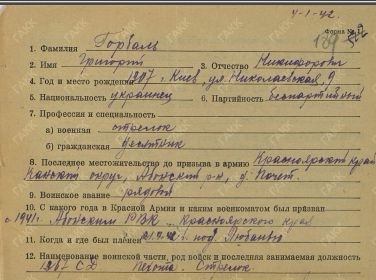 4-1-42.
Форма № 1
1. Фамилия Горваль
2. Имя Григорий 3. Отчество Никифорович
4. Год и место рождения 1907 г. Киев, ул. Николаевская, 9
5. Национальность украинец 6. Партийность Беспартийный
7. Профессия и специальность
а) военная стрелок
б) гражданская десятник
8. Последнее местожительство до призыва в армию Красноярский край
Канский округ, Абанский р-н, д. Почет.
9. Воинское звание рядовой
10. С какого года в Красной Армии и каким военкоматом был призван
с 1941г. Абанским РВК Красноярского края
11. Когда и где был пленен под Любанью
12. Наименование воинской части, род войск и последняя занимаемая должность
1267 СП Пехота. Стрелок